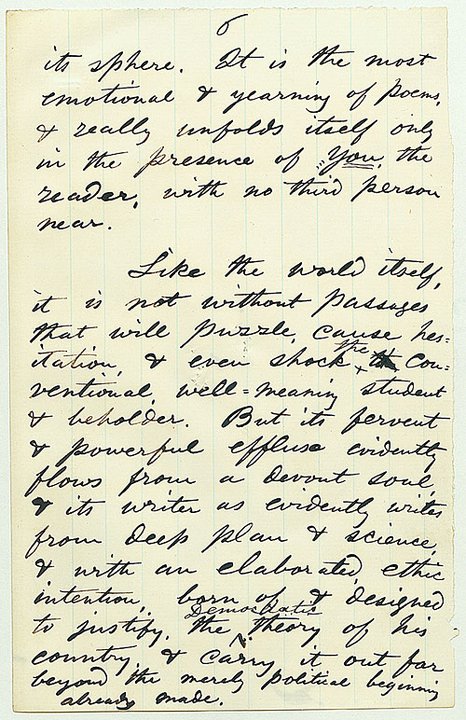 6
its sphere. It is the most
emotional & yearning of poems,
& really unfolds itself only
in the presence of "You, the
reader, with no third person
near.
Like the world itself,
it is not without passages
that will puzzle, cause hes=
itation, & even shock the con=
ventional, well=meaning student
& beholder. But its fervent
& powerful efflux evidently
flows from a devout soul,
& its writer as evidently writes
from deep plan & science,
& with an elaborated ethic
intention, born of & designed
to justify, the Democratic theory of his
country, & carry it out far
beyond the merely political beginning
already made.